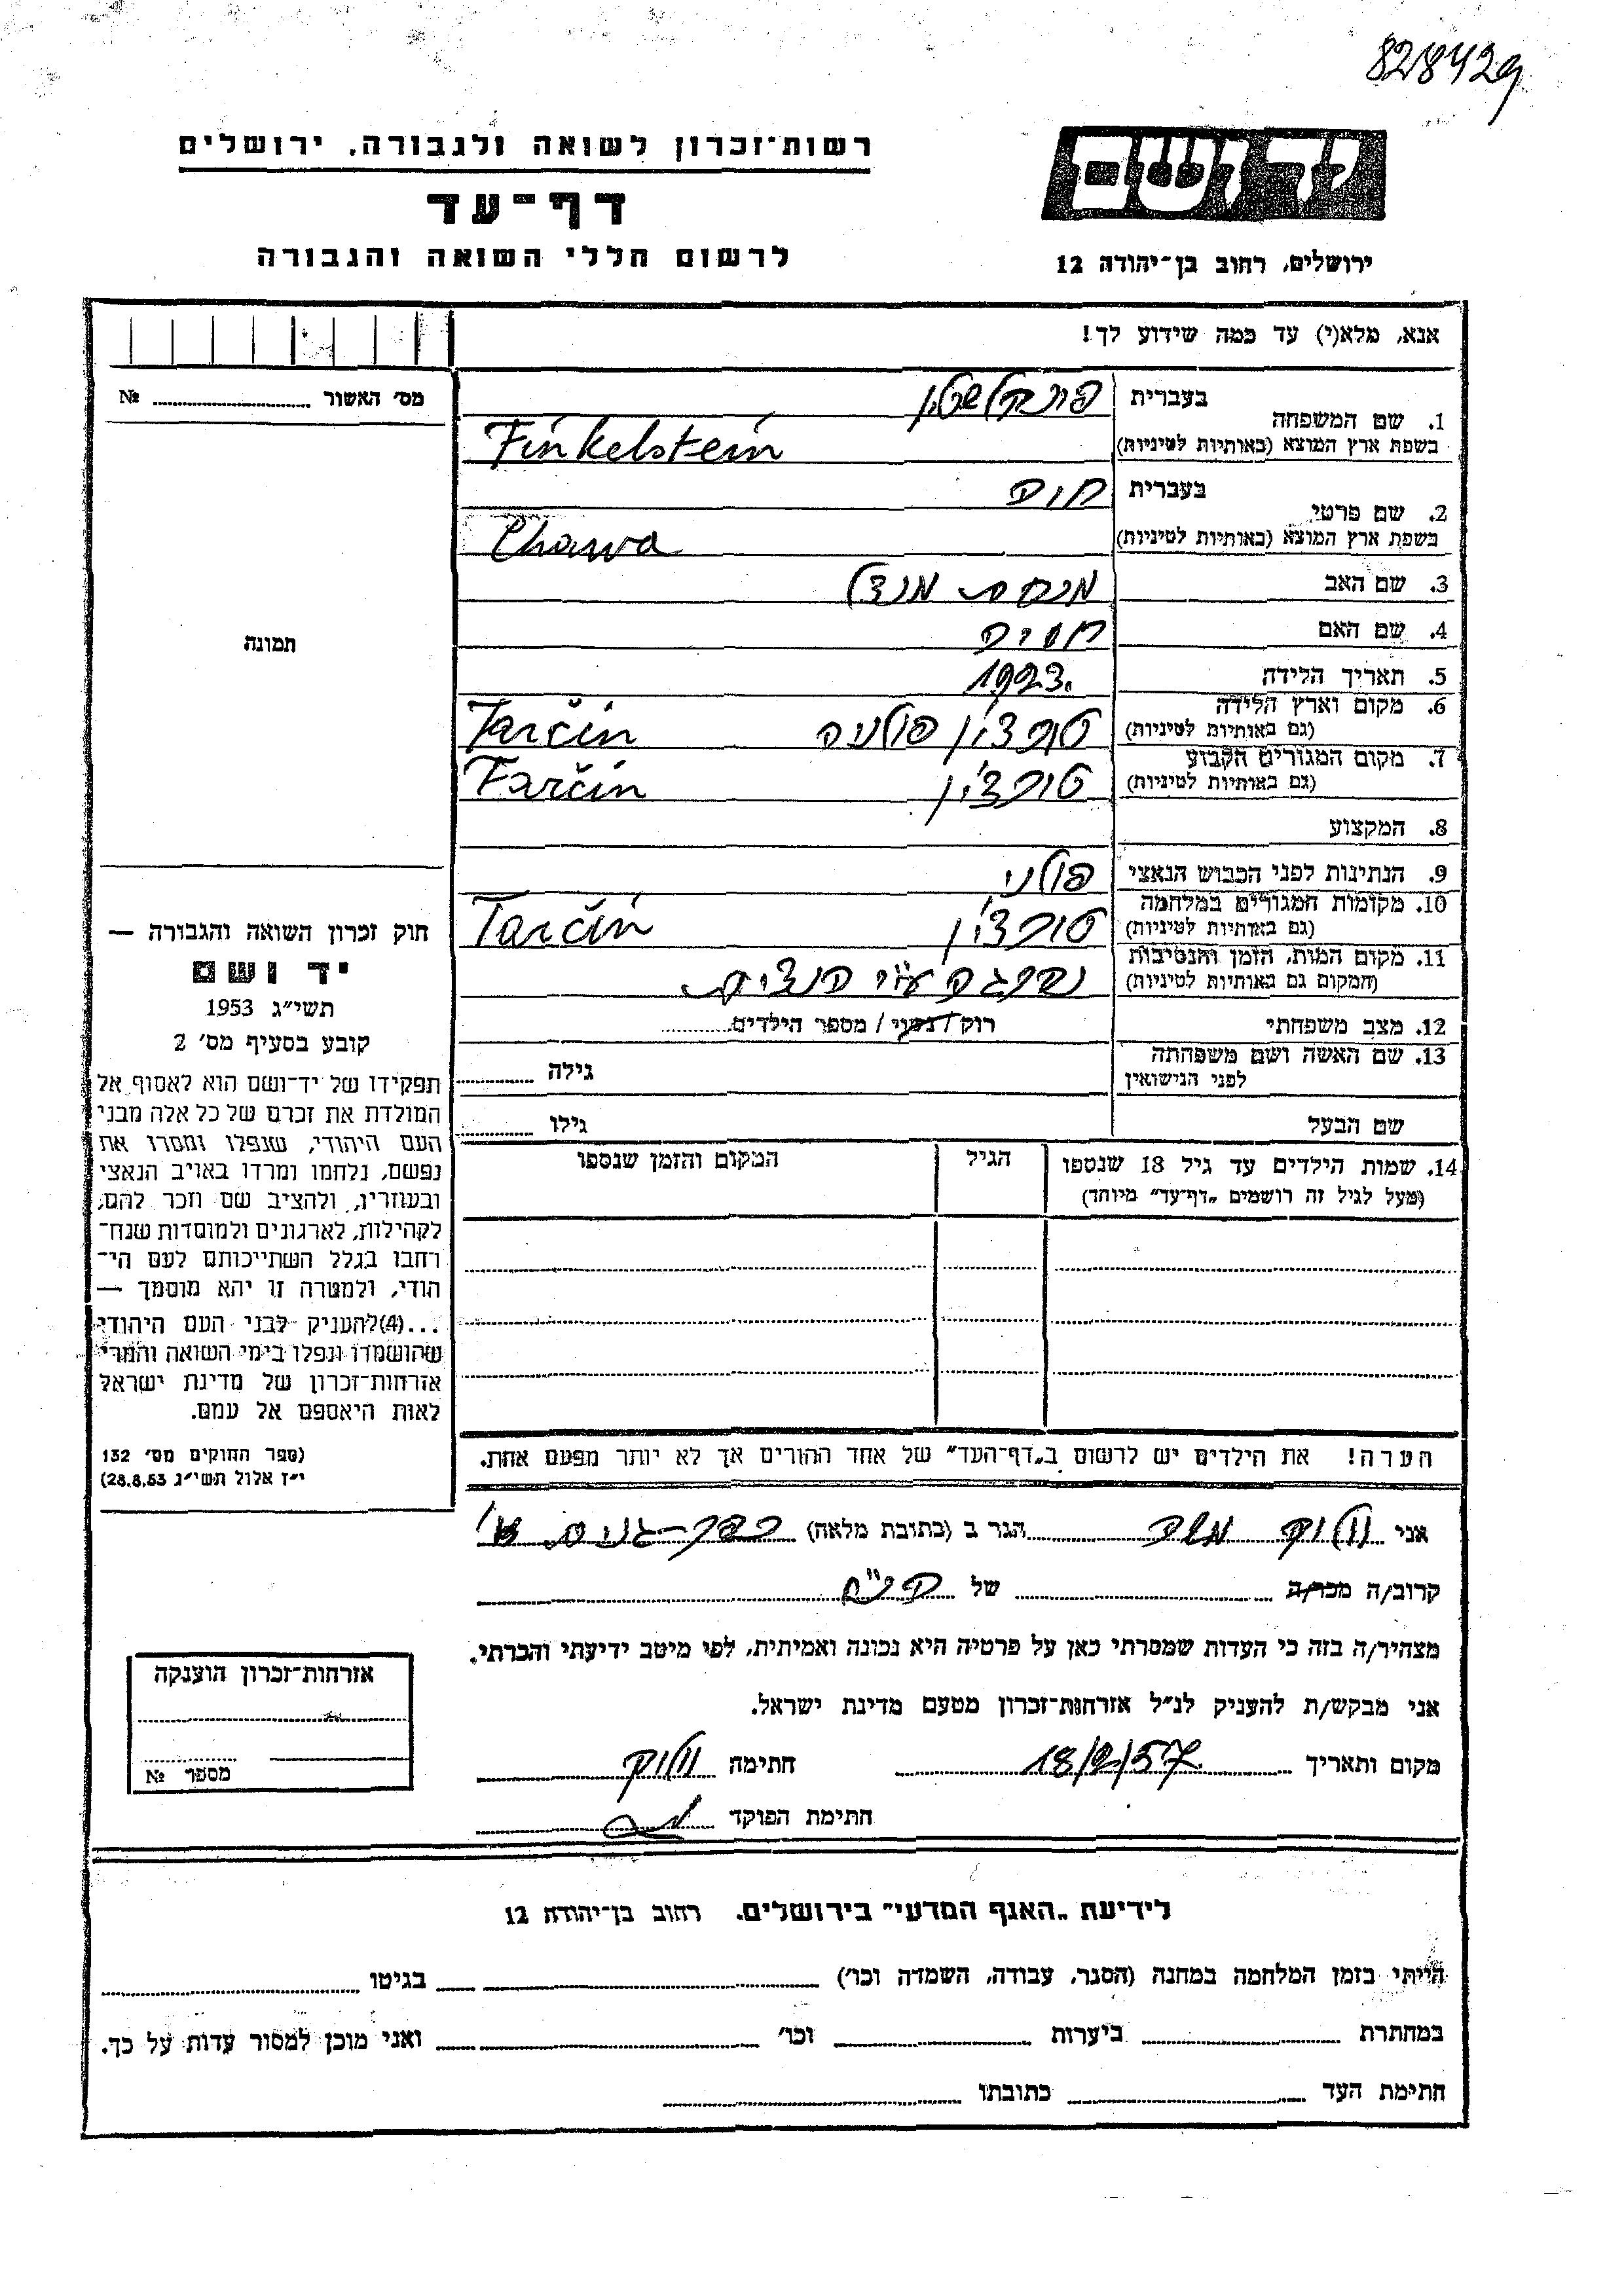 828429
רשות־זכרון לשואה ולגבורה, ירושלים
דף־עד
לרשום חללי השואה והגבורה
יד ושם
ירושלים, רחוב בן־יהודה 12
אנא, מלא(י) עד כמה שידוע לך!
מס׳ האשור № 
1. שם המשפחה בעברית פינקלשטין
בשפת ארץ המוצא (באותיות לטיניות) Finkelstein
2. שם פרטי בעברית חוה
בשפת ארץ המוצא (באותיות לטיניות) Chawa
3. שם האב מנחם מנדל
4. שם האם
5. תאריך הלידה 1923.
6. מקום וארץ הלידה (גם באותיות לטיניות) טורצ׳ין פולניה Tarčin
7. מקום המגורים הקבוע (גם באותיות לטיניות) טורצ׳ין Tarčin
8. המקצוע
9. הנתינות לפני הכבוש הנאצי פולני
10. מקומות המגורים במלחמה (גם באותיות לטיניות) טורצ׳ין Tarčin
11. מקום המות, הזמן והנסיבות (המקום גם באותיות לטיניות) נהרגה ע״י הנצים
12. מצב משפחתי רוק / נשוי / מספר הילדים
13. שם האשה ושם משפחתה לפני הנישואין גילה
שם הבעל גילו
14. שמות הילדים עד גיל 18 שנספו
(מעל לגיל זה רושמים „דף־עד״ מיוחד)
הגיל
המקום והזמן שנספו
תמונה
חוק זכרון השואה והגבורה —
יד ושם
תשי״ג 1953
קובע בסעיף מס׳ 2
תפקידו של יד־ושם הוא לאסוף אל
המולדת את זכרם של כל אלה מבני
העם היהודי, שנפלו ומסרו את
נפשם, נלחמו ומרדו באויב הנאצי
ובעוזריו, ולהציב שם וזכר להם,
לקהילות, לארגונים ולמוסדות שנח־
רחבו בגלל השתייכותם לעם הי־
הודי, ולמטרה זו יהא מוסמך —
...(4)להעניק לבני העם היהודי
שהושמדו ונפלו בימי השואה והמרי
אזרחות־זכרון של מדינת ישראל
לאות היאספם אל עמם.
(ספר החוקים מס׳ 132
י״ז אלול תשי״ג 28.8.53)
הערה! את הילדים יש לרשום ב„דף־העד״ של אחד ההורים אך לא יותר מפעם אחת.
אני וולוק משה הגר ב (כתובת מלאה) כפר-גנים
קרוב/ה מכר/ה של
מצהיר/ה בזה כי העדות שמסרתי כאן על פרטיה היא נכונה ואמיתית, לפי מיטב ידיעתי והכרתי.
אני מבקש/ת להעניק לנ״ל אזרחות־זכרון מטעם מדינת ישראל.
מקום ותאריך 18/2/57 חתימה וולוק
חתימת הפוקד
אזרחות־זכרון הוענקה
מספר №
לידיעת „האגף המדעי״ בירושלים. רחוב בן־יהודה 12
הייתי בזמן המלחמה במחנה (הסגר, עבודה, השמדה וכו׳) בגיטו
במחתרת ביערות וכו׳ ואני מוכן למסור עדות על כך.
חתימת העד כתובתו